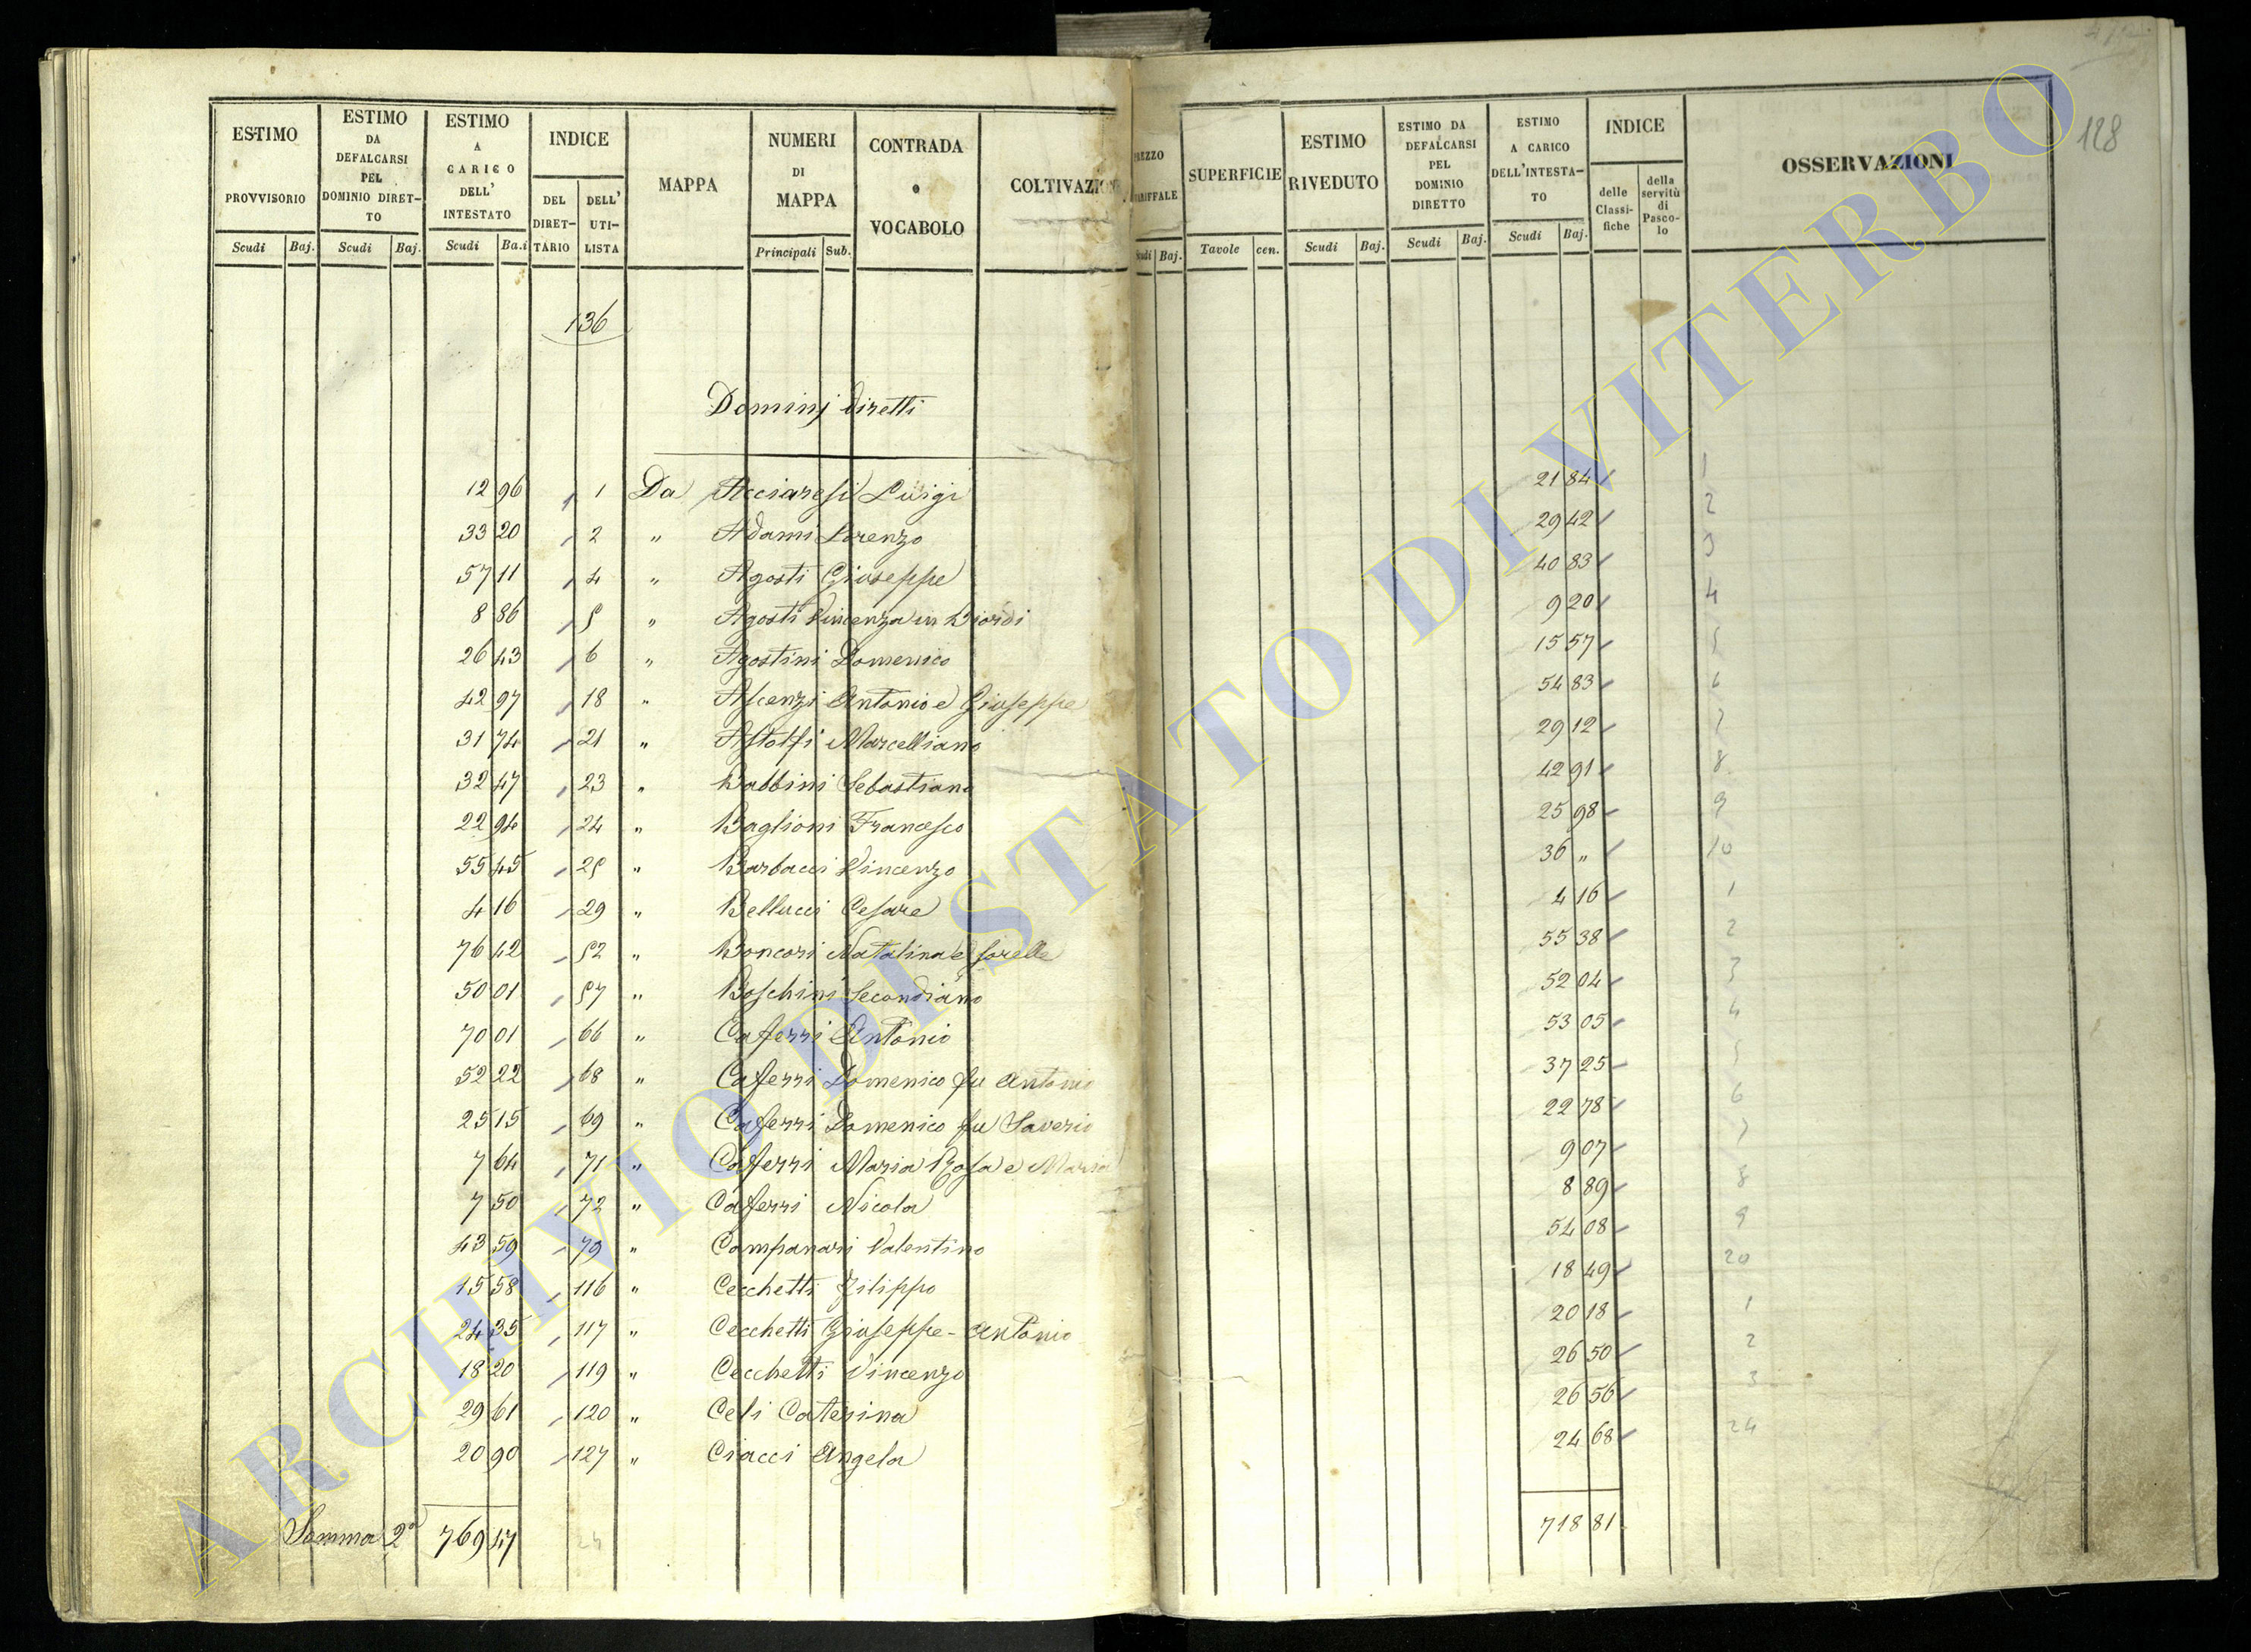 128
ESTIMO PROVVISORIO
ESTIMO DA DEFALCARSI PEL DOMINIO DIRET-TO
ESTIMO A CARICO DELL' INTESTATO
INDICE
DEL DIRET-TARIO
DELL' UTI-LISTA
MAPPA
NUMERI DI MAPPA
CONTRADA o VOCABOLO
COLTIVAZIONE
PREZZO TARIFFALE
SUPERFICIE
ESTIMO RIVEDUTO
ESTIMO DA DEFALCARSI PEL DOMINIO DIRETTO
ESTIMO A CARICO DELL'INTESTA-TO
INDICE
delle Classi-fiche
della servitù di Pasco-lo
OSSERVAZIONI
Scudi Baj. Scudi Baj. Scudi Ba.i Principali Sub. Scudi Baj. Tavole cen. Scudi Baj. Scudi Baj. Scudi Baj.
136
Dominj diretti
12 96 1 Da Acciaresi Luigi 21 84 1
33 20 2 " Adami Lorenzo 29 42 2
57 11 4 " Agosti Giuseppe 40 83 3
8 86 5 " Agosti Vincenza in Biordi 9 20 4
26 43 6 " Agostini Domenico 15 57 5
42 97 18 " Ascenzi Antonio e Giuseppe 54 83 6
31 74 21 " Astolfi Marcelliano 29 12 7
32 47 23 " Babbini Sebastiano 42 91 8
22 94 24 " Baglioni Francesco 25 98 9
55 45 25 " Barbacci Vincenzo 36 " 10
4 16 29 " Bellucci Cesare 4 16 1
76 42 52 " Boncori Natalina e sorelle 55 38 2
50 01 57 " Boschini Secondiano 52 04 3
70 01 66 " Caferri Antonio 53 05 4
52 22 68 " Caferri Domenico fu Antonio 37 25 5
25 15 69 " Caferri Domenico fu Saverio 22 78 6
7 64 71 " Caferri Maria Rosa e Maria 9 07 7
7 50 72 " Caferri Nicola 8 89 8
43 59 79 " Campanari Valentino 54 08 9
15 58 116 " Cecchetti Filippo 18 49 20
24 35 117 " Cecchetti Giuseppe-Antonio 20 18 1
18 20 119 " Cecchetti Vincenzo 26 50 2
29 61 120 " Celi Caterina 26 56 3
20 90 127 " Ciacci Angela 24 68 24
Somma 2a 769 47 24 718 81
ARCHIVIO DI STATO DI VITERBO